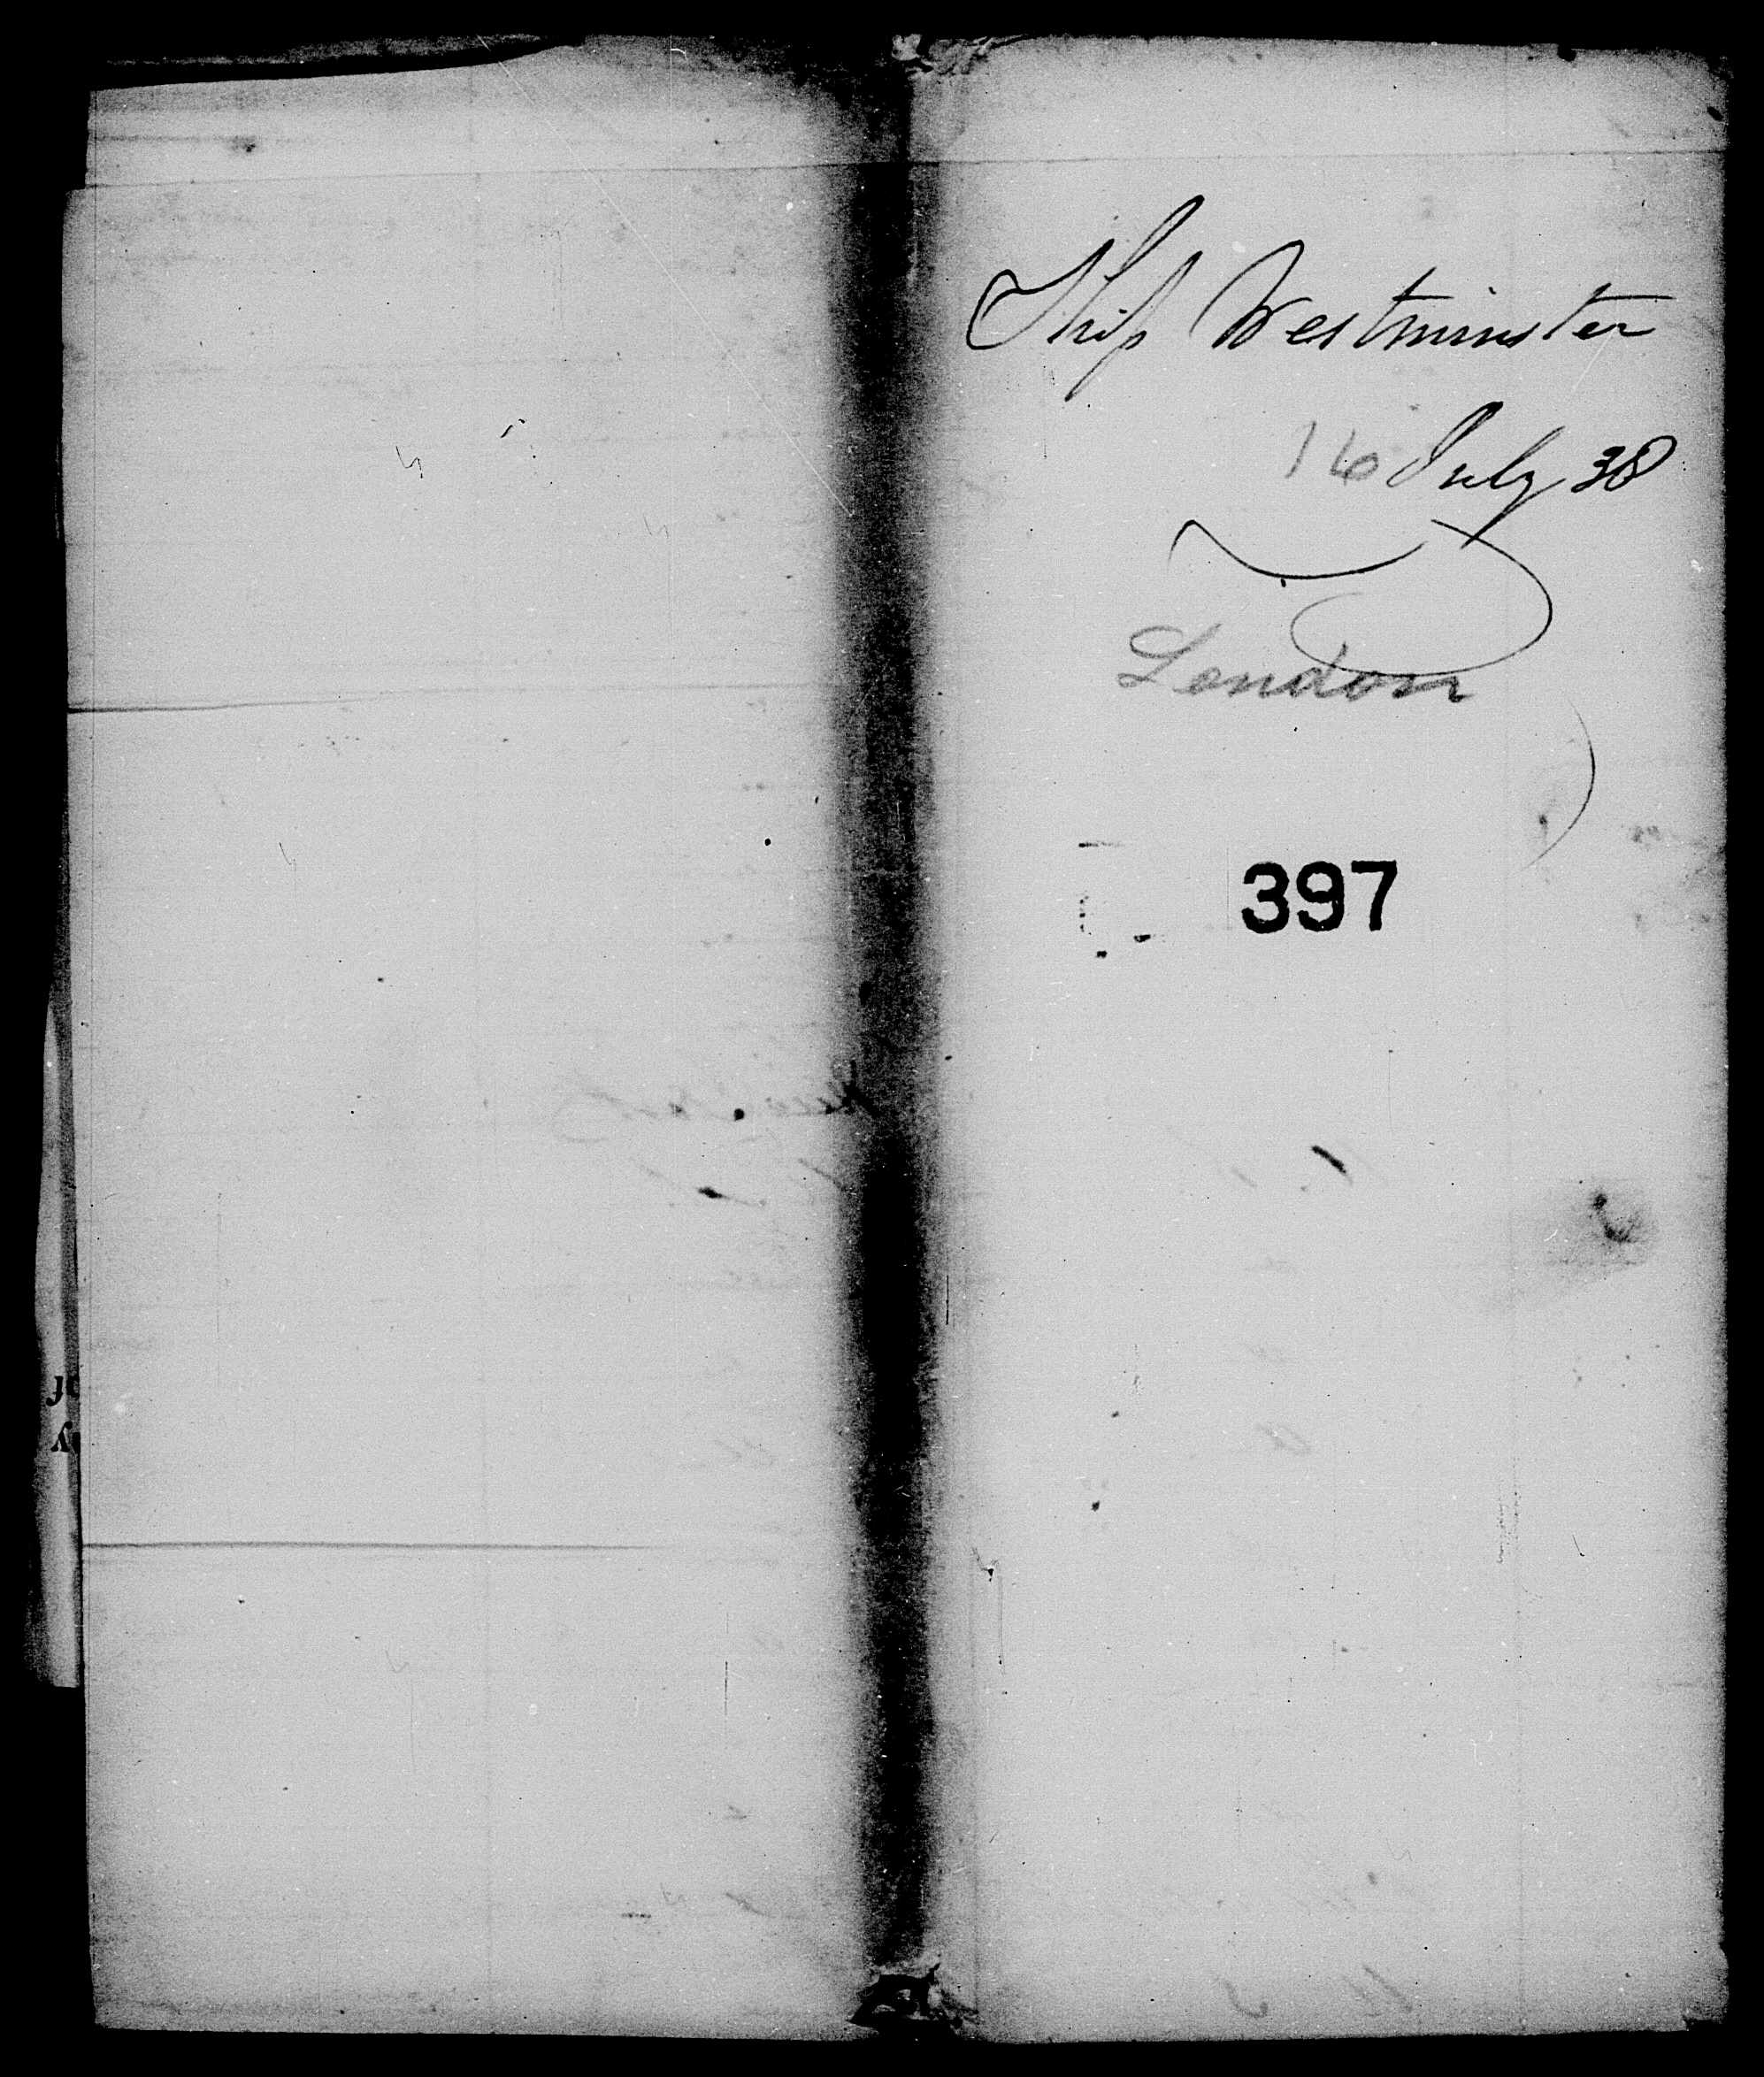 Ship Westminster
16 July 38
London
397